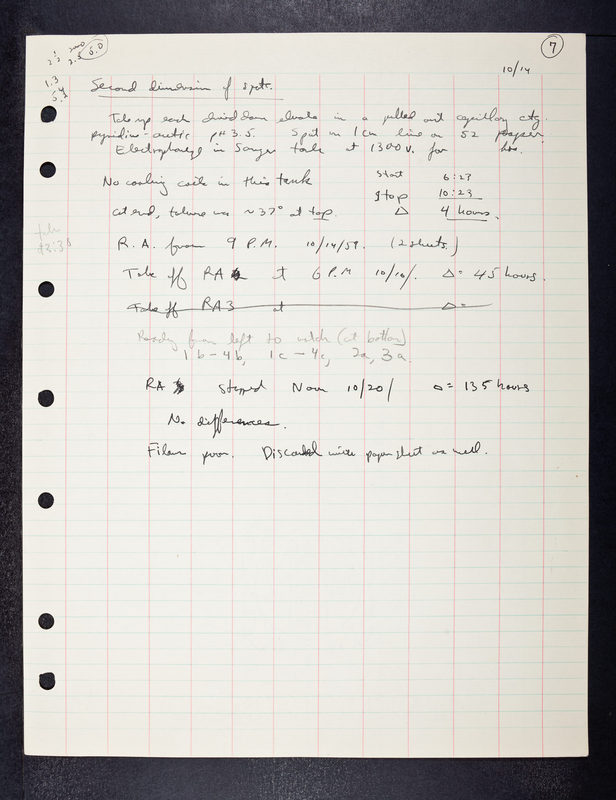 7
10/14
1.3
Second dimension of spots.
Take up each dried down eluate in a pulled out capillary ctg.
pyridine-acetic pH 3.5. Spot on 1 cm line on 52 paper.
Electrophorese in Sanger tank at 1300 V. for hrs.
No cooling coils in this tank
Start 6:23
Stop 10:23
At end, toluene was ~37° at top.
Δ 4 hours.
R.A. from 9 P.M. 10/14/59. (2 sheets.)
Take off RA at 6 P.M 10/16/. Δ= 45 hours.
Take off RA3 at Δ=
Ready from left to (at bottom)
1b-4b, 1c-4c, 2a, 3a.
RA stopped Noon 10/20/ Δ= 135 hours
No differences.
Films poor. Discarded paper sheet as well.